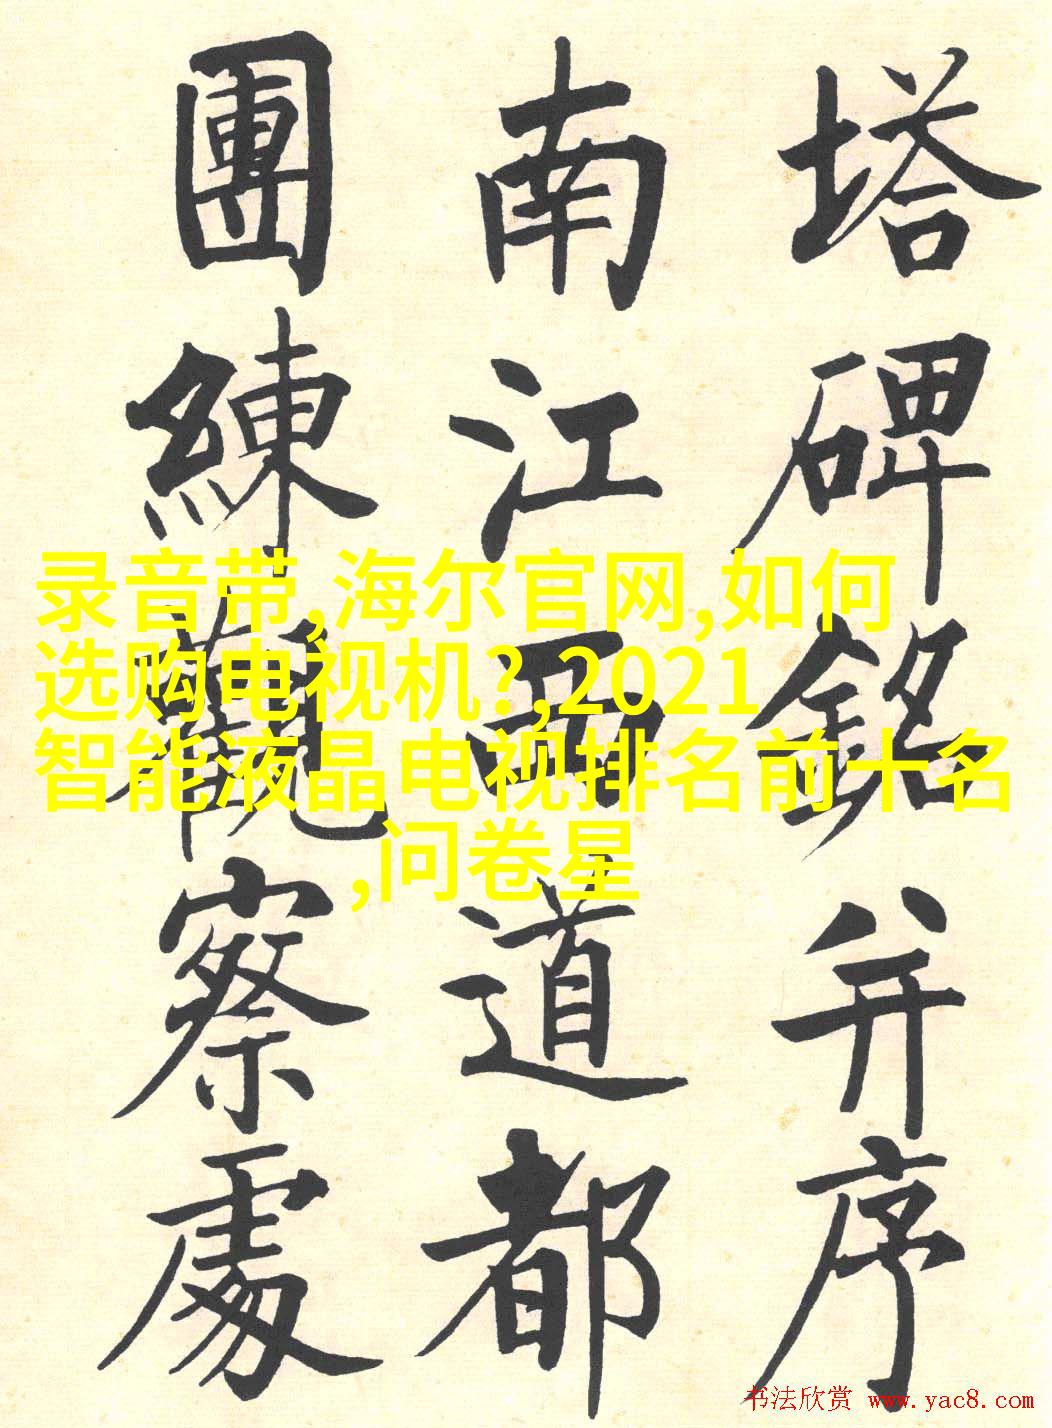 塔碑銘并序
南江西道都
團練觀察處
录音带,海尔官网,如何
选购电视机?,2021
智能液晶电视排名前十名
,问卷星
书法欣赏 www.yac8.com